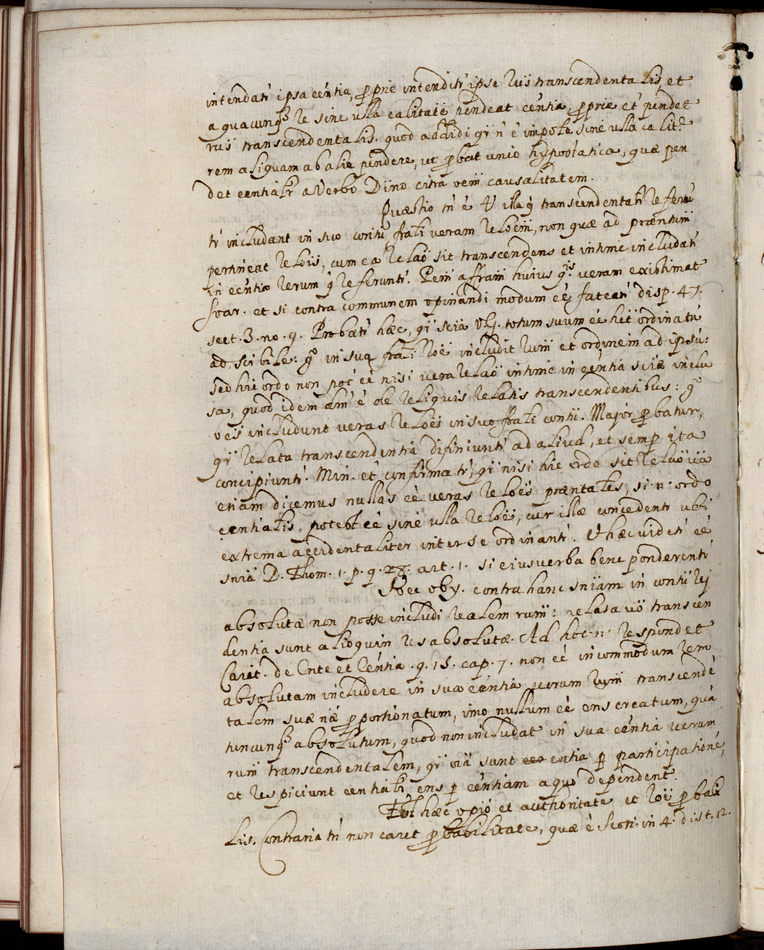 intendati ipsa centia, proprie intenditr ipse rus transcendentalis, et
a quacunq3 re sine ulla calitate pendeat centia, proprie et pendet
rus transcendentalis. quod addidi qr n è impole sine ulla calit.e
rem aliquam ab alia pendere, ut probat unio hypostatica, quae pen
det centialr a Verbo Dino citra veru causalitatem.
Quaestio tn è
tr includant in suo contu frali veram reloem, non quae ad praentum
pertineat relois, cum ea relao sit transcendens et intime includatr
in centia rerum q referuntr. Pem afram huius qs. veram existimat
Soar. et si contra communem opinandi modum eè fateatr disp. 47.
sect. 3. no. 9. Probatr haec, qr scia v.g. totum suum eè het ordinatu
ad scibile: go in sua frali roe includit rum et ordinem ad ipsu:
sed hic ordo non pot eè nisi vera relao intime in centia sciae inclu
sa, quod idem dm è de reliquis relatis transcendentibus: go
veis includunt veras reloes in suo frali contu. Major probatur,
qr relata transcendentia difiniuntr ad aliud, et semp ita
concipiuntr. Min. et confirmatr, qr nisi hic ordo sit relao
etiam dicemus nullas eè veras reloes praentales, si n. ordo
centialis, potest eè sine ulla reloe, cur illae concedentr ubi
extrema accidentaliter inter se ordinantr. Et haec videtr eè
snia D. Thom. 1. p. q. 28. art. 1. si eius verba bene ponderentr
Nec obv. contra hanc sniam in contu rei
absolutae non posse includi realem rum: relata vo transcen
dentia sunt alioquin res absolutae. Ad hoc n. respondet
Caiet. de Ente et centia. q. 15. cap. 7. non eè incommodum rem
absolutam includere in sua centia verum rum transcende
talem suae nae proportionatum, imo nullum eè ens creatum, qua
tuncunq3 absolutum, quod non includat in sua centia veram
rum transcendentalem, qr via sunt entia p participatione,
et respiciunt centialr ens p centiam a quo dependent.
Est haec opio et authoritate et roe probabi
lis. Contraria tn non caret probabilitate, quae è Scoti in 4. dist. 12.